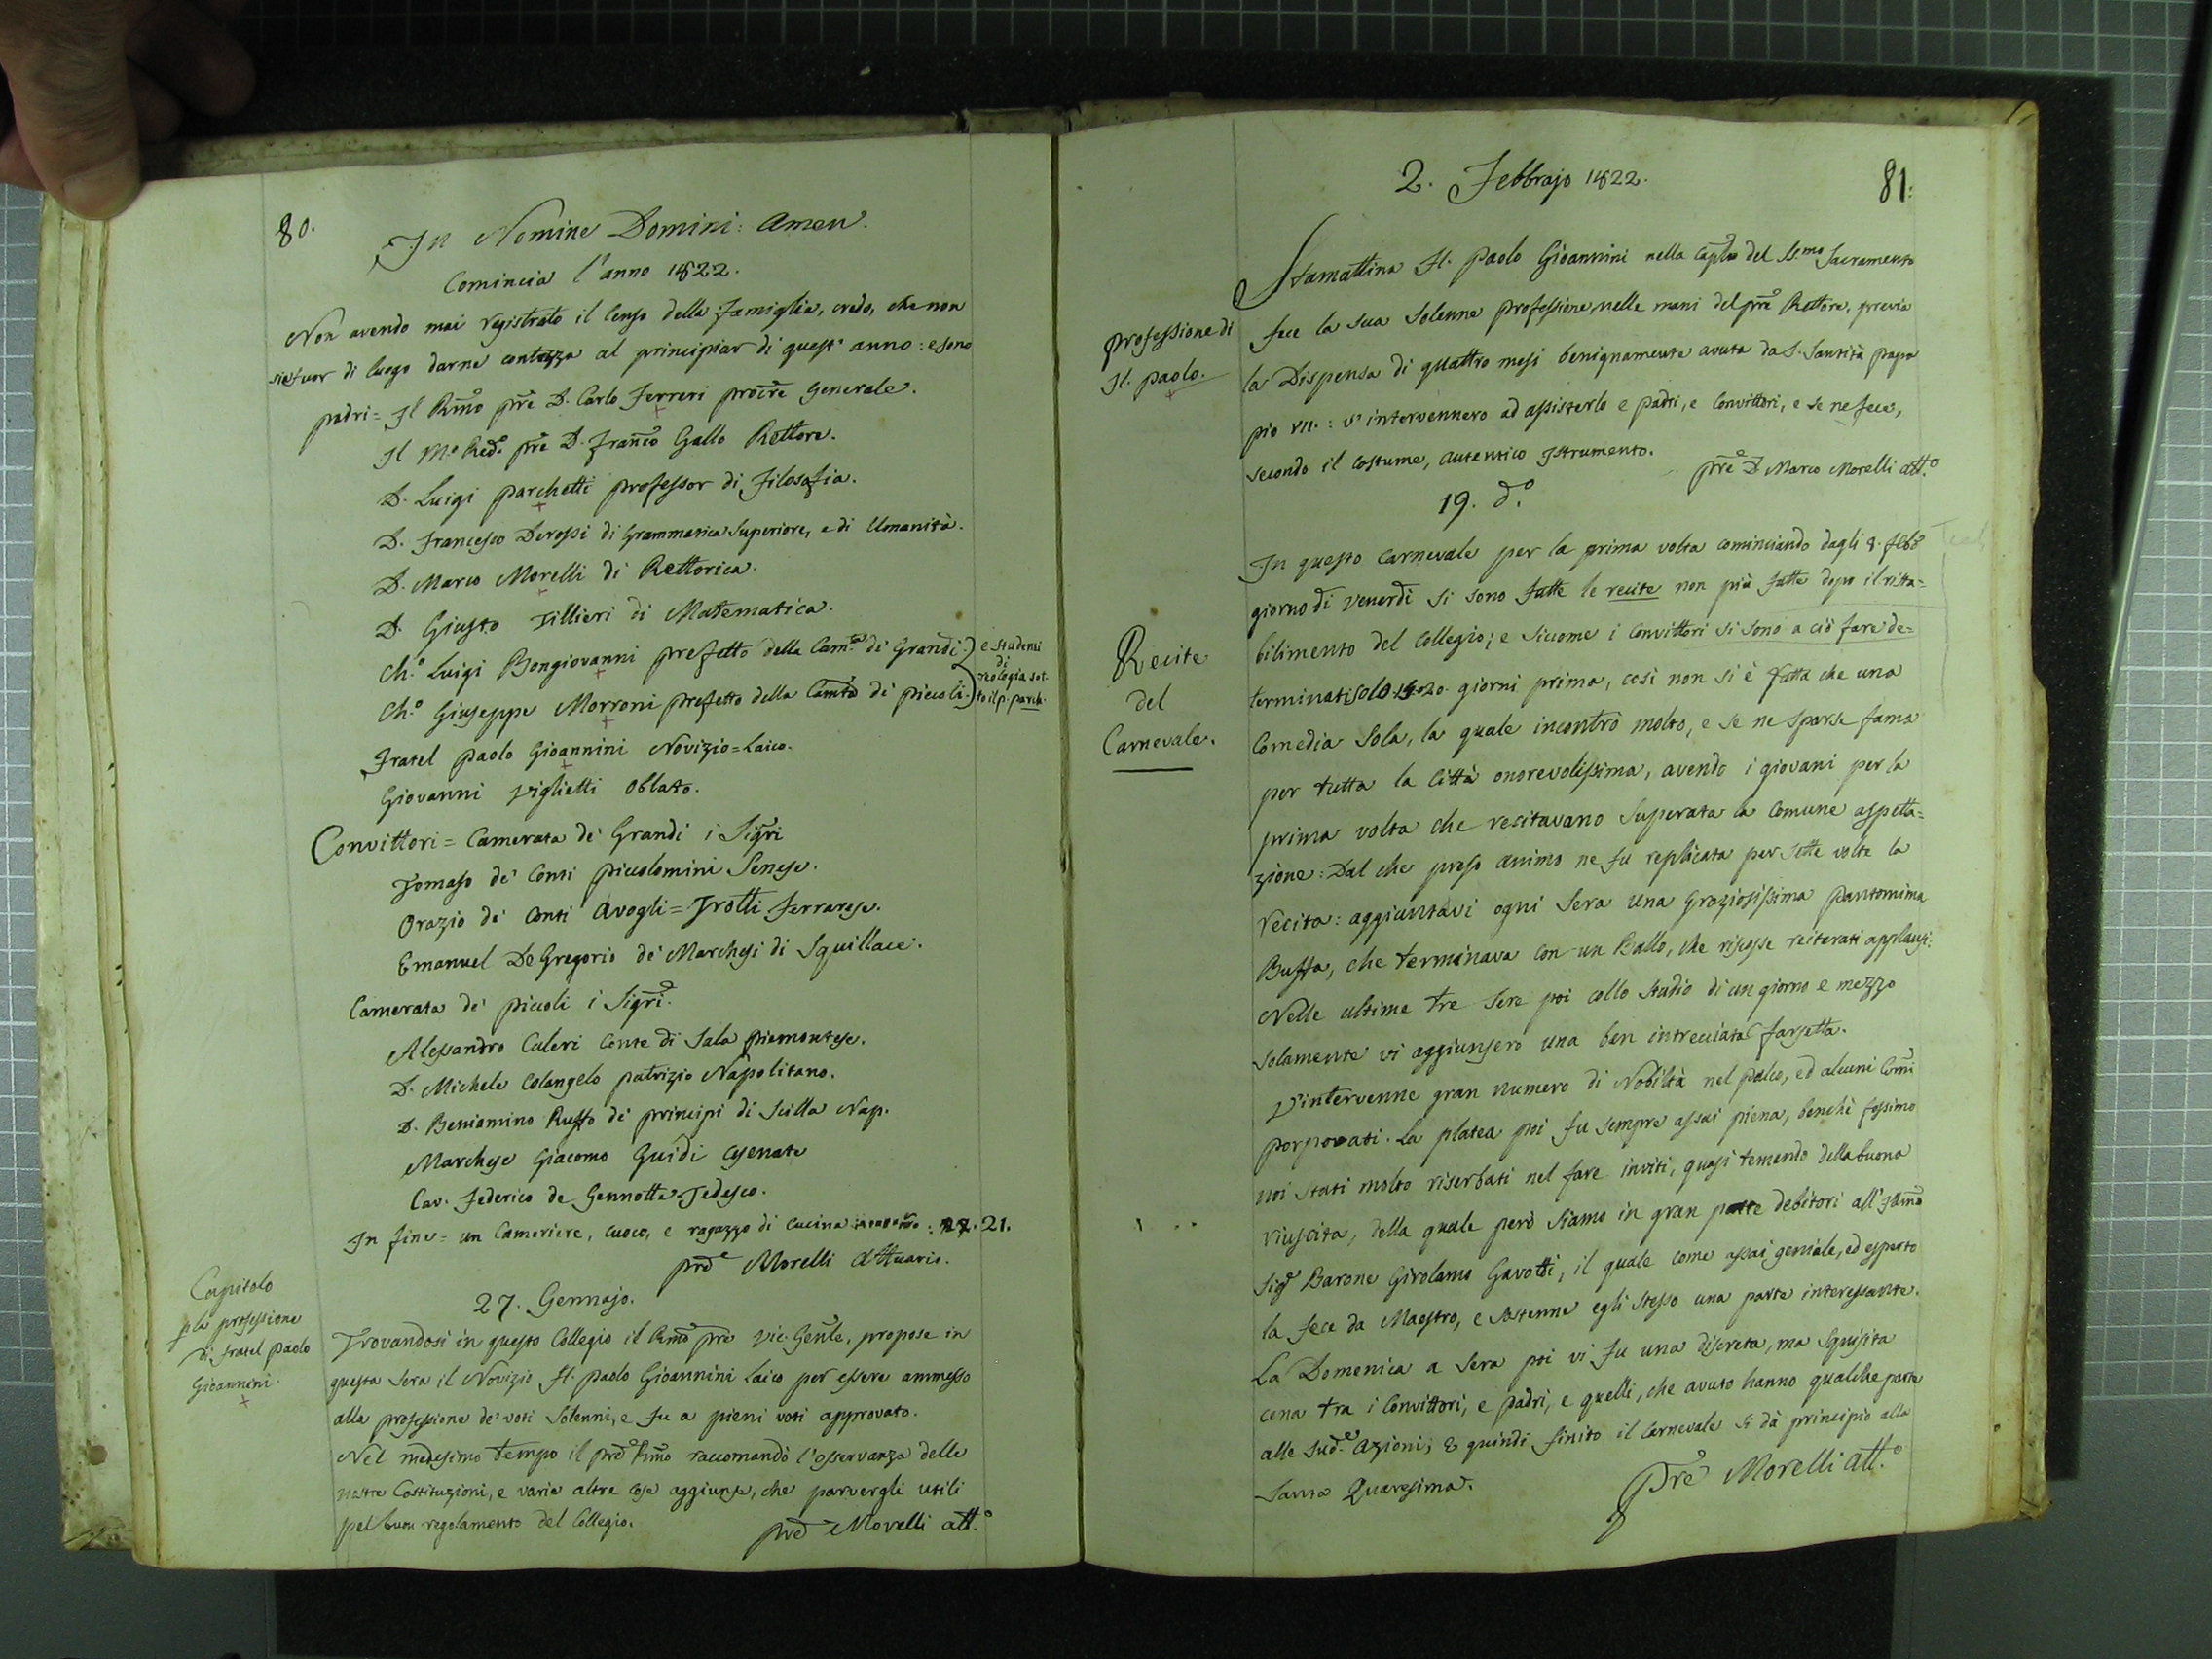 80.
In Nomine Domini: Amen.
Comincia l'anno 1822.
Non avendo mai registrato il Censo della famiglia, credo, che non
sia fuor di luogo darne contezza al principiar di quest' anno: e sono
padri = Il Rmo pre D. Carlo Ferreri procre Generale.
Il M.o Red.o pre D. Franco Gallo Rettore.
D. Luigi parchetti professor di filosofia.
D. Francesco Derossi di Grammatica Superiore, e di Umanità.
D. Marco Morelli di Rettorica.
D. Giusto Tillieri di Matematica.
Ch.o Luigi Bongiovanni prefetto della Cam.ta de' Grandi
Ch.o Giuseppe Morroni prefetto della Camta di piccoli.
e studenti
di
teologia sot-
to il p. parch.
Fratel paolo Gioannini Novizio = Laico.
Giovanni Viglietti Oblato.
Convittori = Camerata de' Grandi i Sigri
Tomaso de' Conti piccolomini Senese.
Orazio de' Conti Avogli = Trotti Ferrarese.
Emanuel De Gregorio de' Marchesi di Squillace.
Camerata de' piccoli i Sigri.
Alessandro Caleri Conte di Sala piemontese.
D. Michele Colangelo patrizio Napolitano.
D. Beniamino Ruffo de' principi di Scilla Nap.
Marchese Giacomo Guidi Cesenate
Cav. Federico de Gennotte Tedesco.
In fine = un Cameriere, cuoco, e ragazzo di cucina : 21.
pre Morelli Attuario.
Capitolo
p la professione
di fratel paolo
Gioannini.
27. Gennajo.
Trovandosi in questo Collegio il Rmo pre Vic. Genle, propose in
questa sera il Novizio Fl. paolo Gioannini Laico per essere ammesso
alla professione de' voti Solenni, e fu a pieni voti approvato.
Nel medesimo tempo il pre Rmo raccomandò l'osservanza delle
nostre Costituzioni, e varie altre cose aggiunse, che parvergli utili
pel buon regolamento del Collegio.
pre Morelli att.o
2. Febbrajo 1822.
81.
professione di
Fl. paolo.
Stamattina Fl. paolo Gioannini nella Caplla del SS.mo Sacramento
fece la sua solenne professione, nelle mani del pre Rettore, previa
la Dispensa di quattro mesi benignamente avuta da S. Santità papa
pio VII.: v' intervennero ad assisterlo e padri, e Convittori, e se ne fece,
secondo il costume, autentico Istrumento.
pre D. Marco Morelli att.o
19. d.o
Recite
del
Carnevale.
In questo Carnevale per la prima volta cominciando dagli 8. febo
giorno di Venerdì si sono fatte le recite non più fatte dopo il rista=
bilimento del Collegio; e siccome i Convittori si sono a ciò fare de=
terminati solo 20. giorni prima, così non si è fatta che una
Comedia sola, la quale incontrò molto, e se ne sparse fama
per tutta la Città onorevolissima, avendo i giovani per la
prima volta che recitavano superata la comune aspetta=
zione: Dal che preso animo ne fu replicata per sette volte la
recita: aggiuntavi ogni sera una graziosissima pantomima
Buffa, che terminava con un Ballo, che risosse reiterati applausi.
Nelle ultime tre sere poi collo studio di un giorno e mezzo
solamente vi aggiunsero una ben intrecciata farsetta.
V'intervenne gran numero di Nobiltà nel palco, ed alcuni Emi
porporati. La platea poi fu sempre assai piena, benchè fossimo
noi stati molto riserbati nel fare inviti, quasi temendo della buona
riuscita, della quale però siamo in gran parte debitori all'
Sigr Barone Girolamo Gavotti, il quale come assai geniale, ed esperto
la fece da Maestro, e sostenne egli stesso una parte interessante.
La Domenica a sera poi vi fu una discreta, ma squisita
cena tra i Convittori, e padri, e quelli, che avuto hanno qualche parte
alle sud.e Azioni; E quindi finito il Carnevale si dà principio alla
santa Quaresima.
pre Morelli att.o